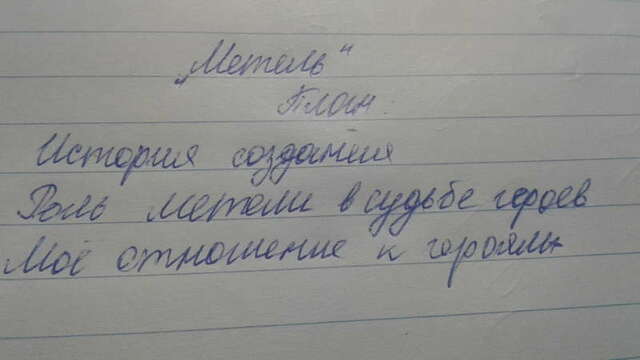 „Метель"
План.
История создания
Роль метели в судьбе героев
Моё отношение к героям